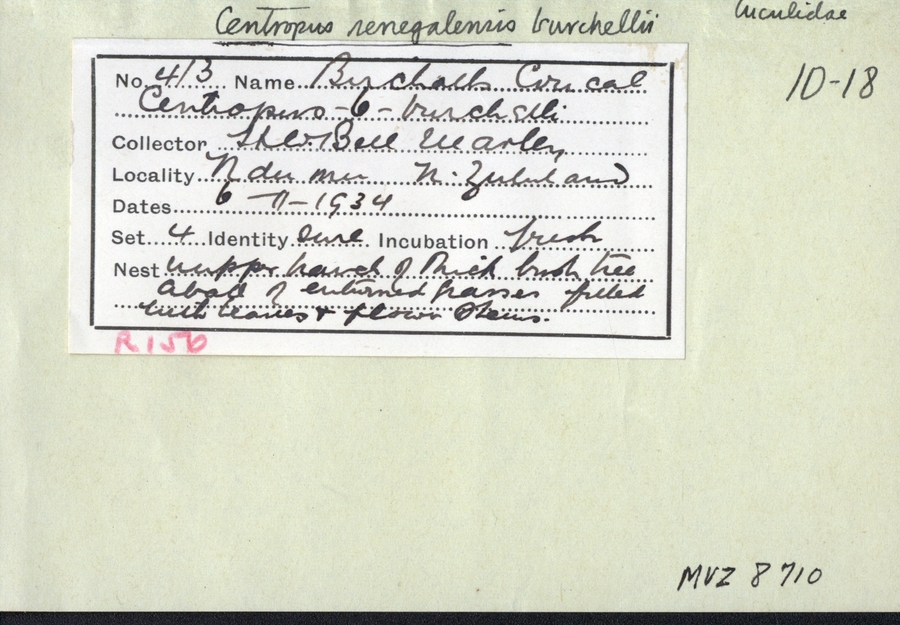 Centropus senegalensis burchellii
Cuculidae
10-18
No. 413 Name Burchells Coucal
Centropus - b - burchelli
Collector H.W. Bell Marley
Locality Ndumu N. Zululand
Dates 6 - 11 - 1934
Set 4 Identity Sure Incubation fresh
Nest upper branch of thick bush tree
a ball of entwined grasses filled
with leaves & flower stems.
R156
MVZ 8710